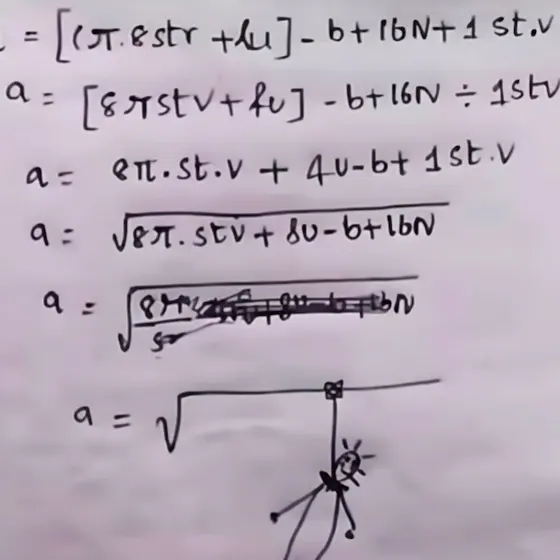 = [(π.8str + 4u] - b + 16N + 1 st.v
a = [8πstv + 4u] - b + 16N ÷ 1stv
a = 8π.st.v + 4u - b + 1st.v
a = √8π.stv + 8u - b + 16N
a = √8π
a = √